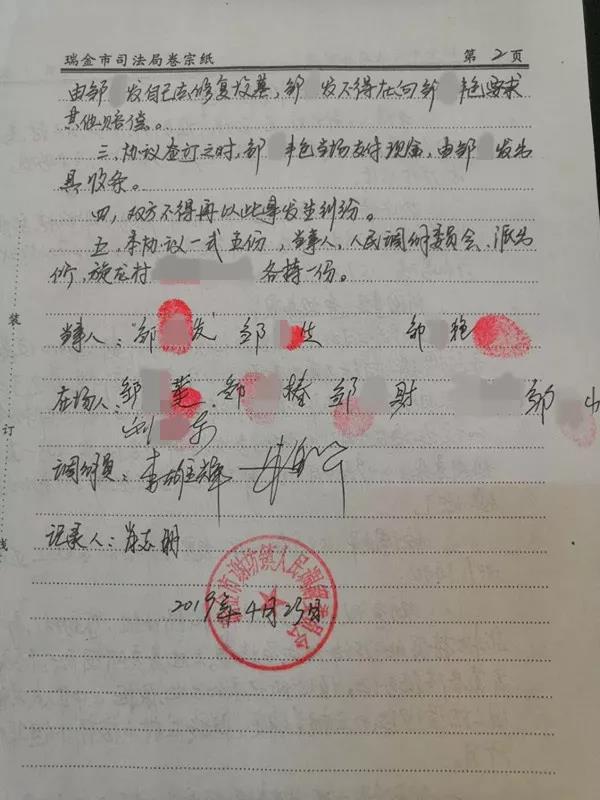 瑞金市司法局卷宗纸 第2页
由邹 发自己去修复坟墓,邹 发不得在向邹 艳要求
其他赔偿。
三、协议签订之时,邹 艳当场支付现金,由邹 发出
具收条。
四、双方不得再以此事发生纠纷。
五、本协议一式五份,当事人、人民调解委员会、派出
所、 村 各持一份。
当事人:邹 发 邹 生 邹 艳
在场人:邹 莲 邹 椿 邹 财 邹
刘
调解员:李雄辉
记录人:肖志明
瑞金市谢坊镇人民调解委员会
2019年4月23日
装
订
线